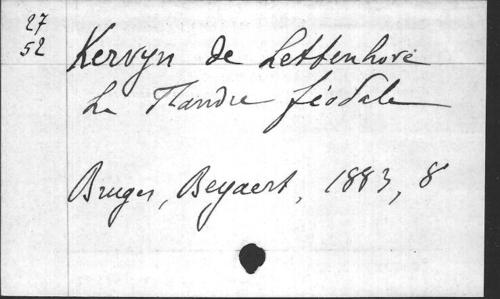 27
52
Kervyn de Lettenhove
La Flandre féodale
Bruges, Beyaert, 1883, 8°